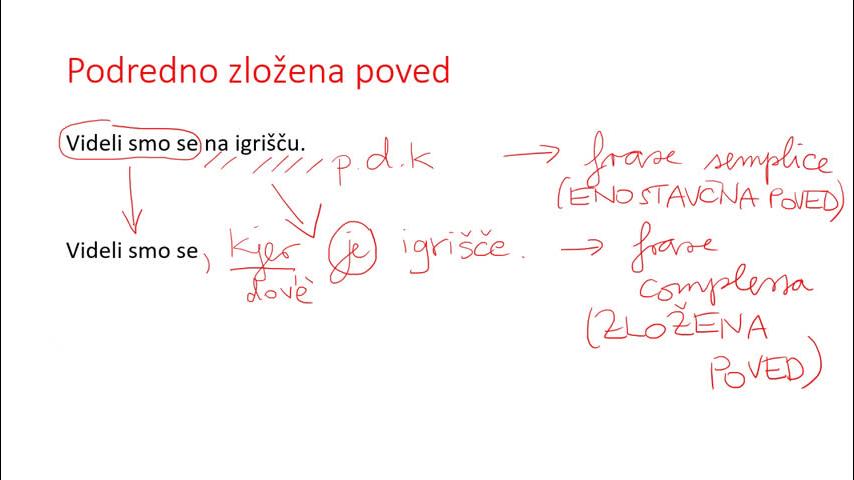 Podredno zložena poved
Videli smo se na igrišču. p.d.k → frase semplice
(ENOSTAVČNA POVED)
Videli smo se, kjer je igrišče. → frase
dov'è complessa
(ZLOŽENA
POVED)